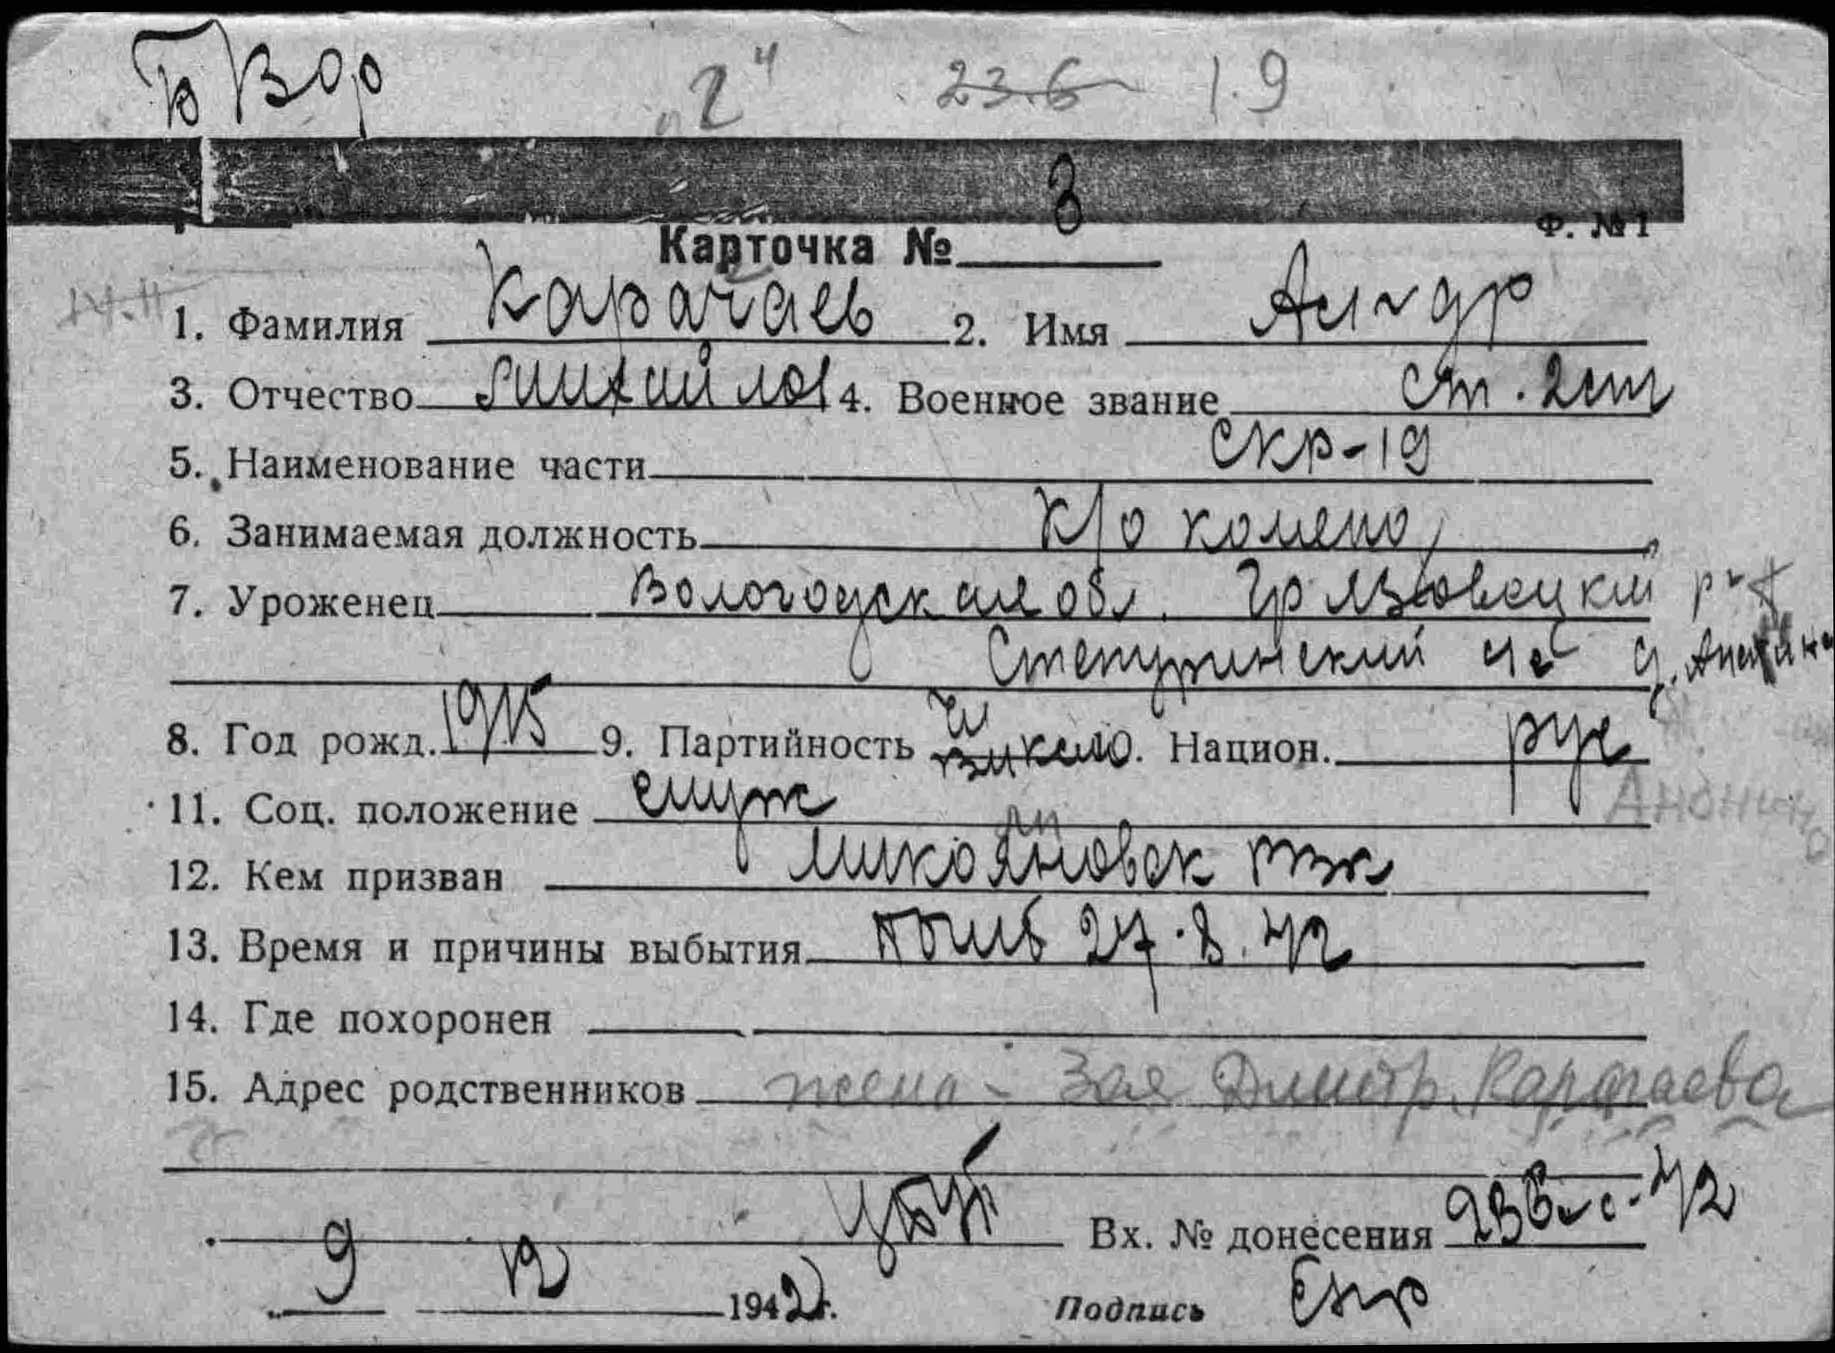 "2" 23.6 1.9
3
Ф. №1
Карточка №
1. Фамилия Карагаев 2. Имя Ал-др
3. Отчество Михайлов 4. Военное звание ст. 2 ст
5. Наименование части СКР-19
6. Занимаемая должность к/о коменд
7. Уроженец Вологодская обл. Грязовецкий р-н
Степуринский с/с д.
8. Год рожд. 1915 9. Партийность Нац. 10. Национ. рус
11. Соц. положение служ
Анонино
12. Кем призван Микояновск РВК
13. Время и причины выбытия погиб 27.8.42
14. Где похоронен
15. Адрес родственников жена - Зоя Дмитр. Каратаева
Вх. № донесения 236 сс-42
9 12 1942 г. Подпись